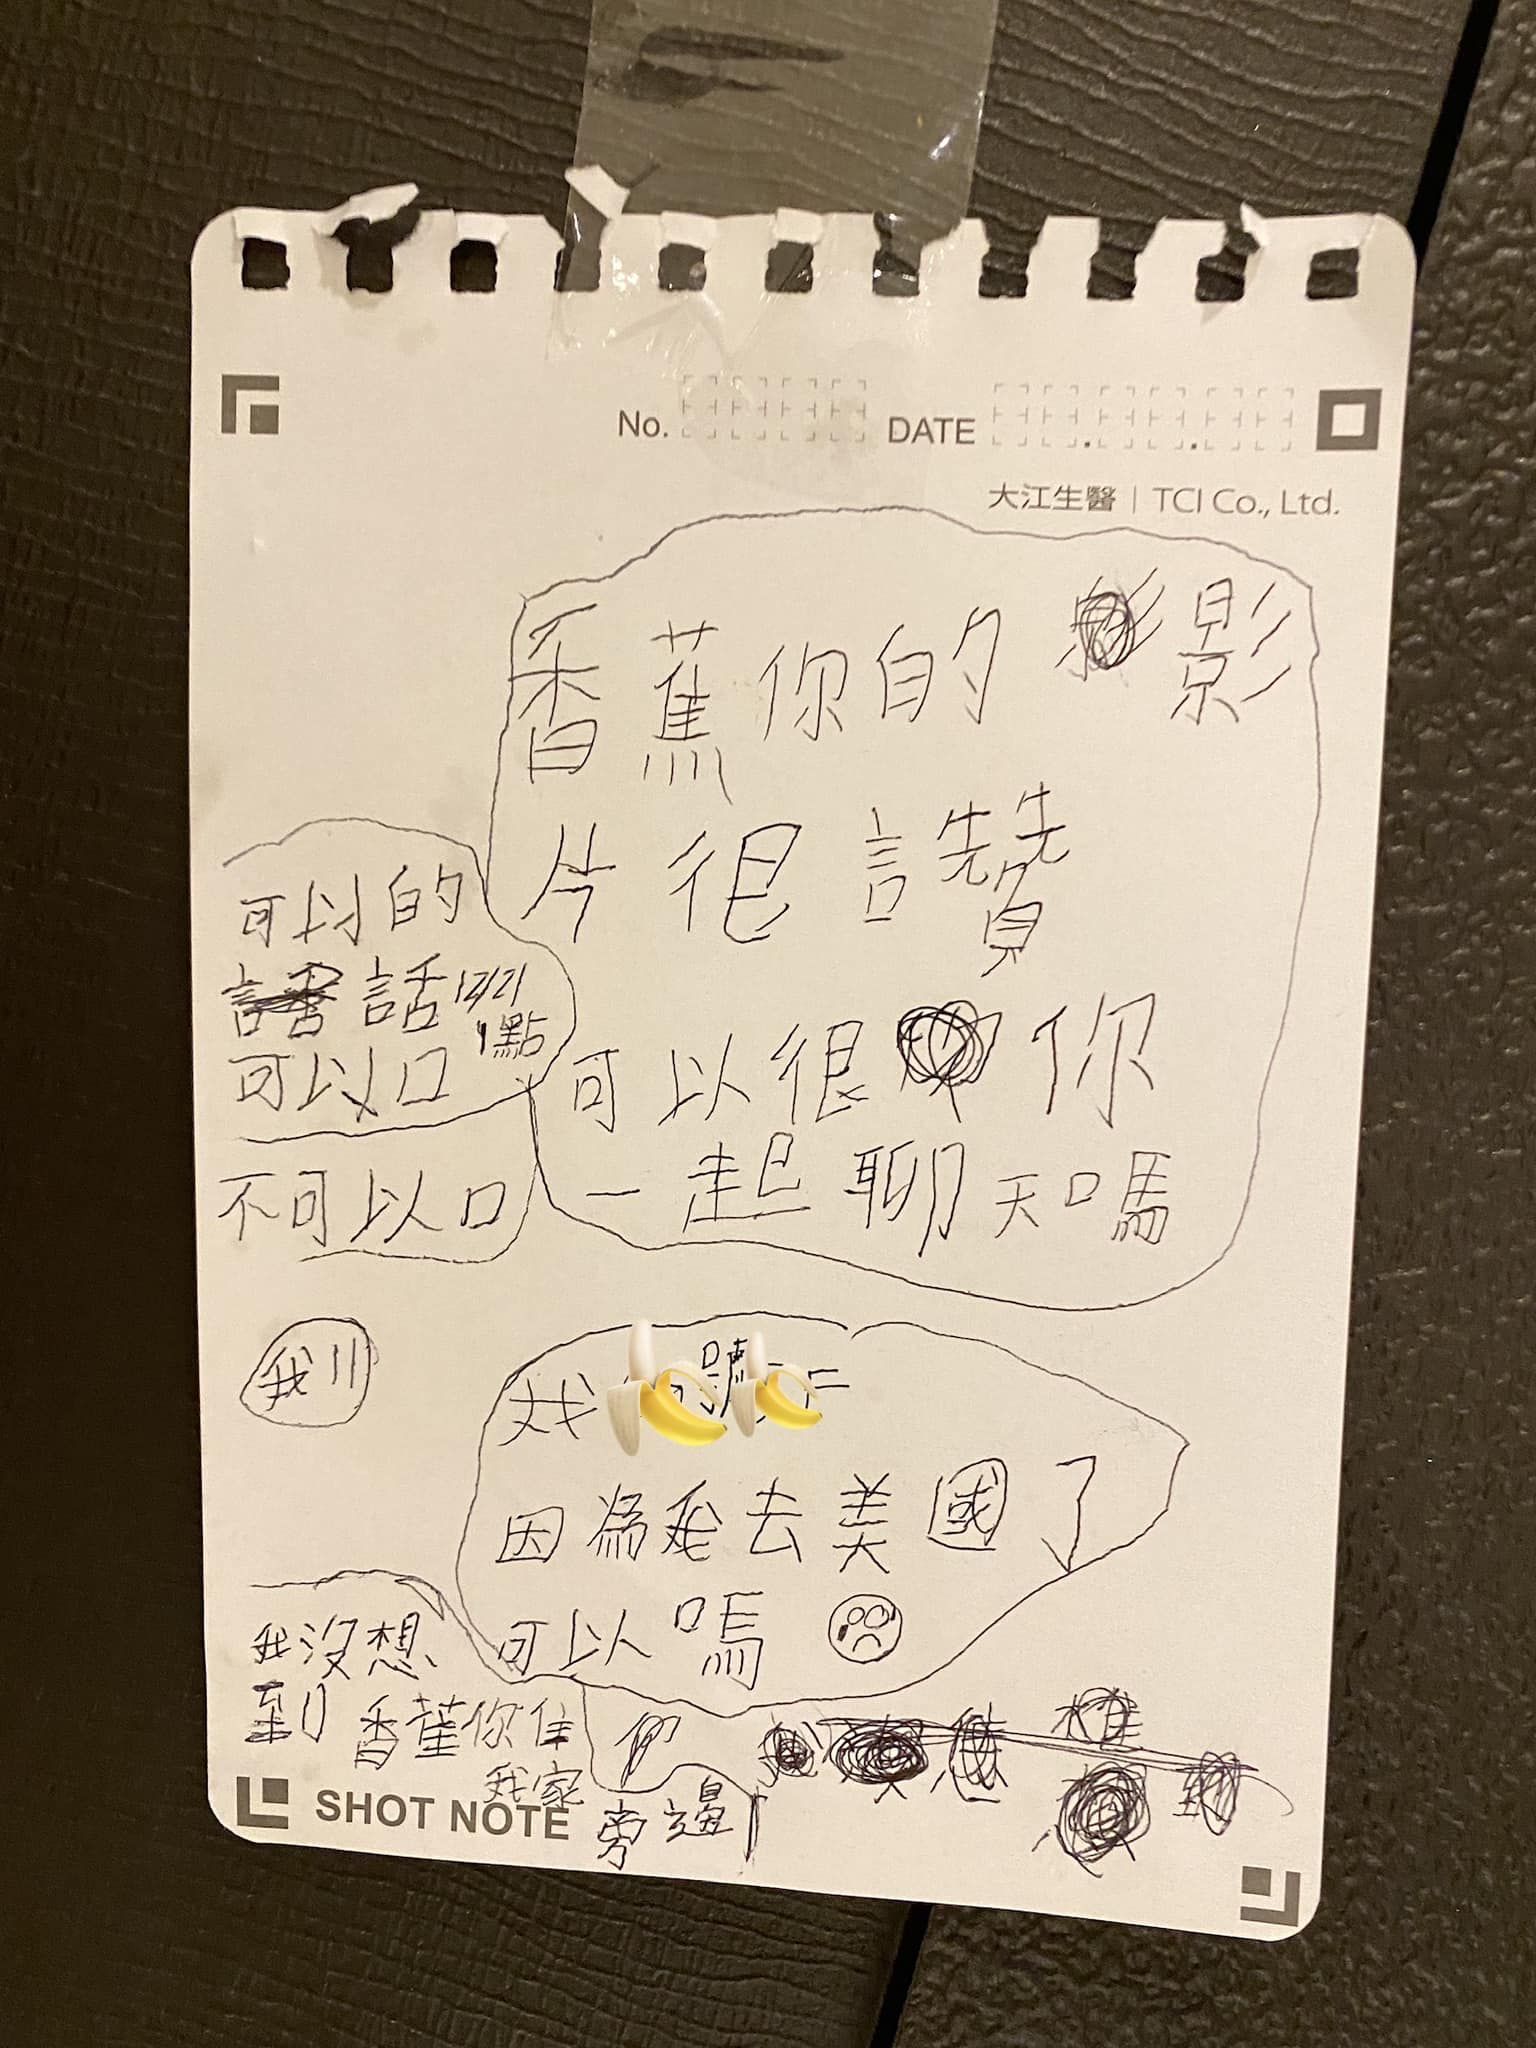 No. DATE
大江生醫 | TCI Co., Ltd.
香蕉你的影
片很讚
可以很你
一起聊天嗎
可以的
話12/21
1點
可以口
不可以口
我
號
因為我去美國了
可以嗎
我沒想
到香蕉你住
我家
旁邊
SHOT NOTE